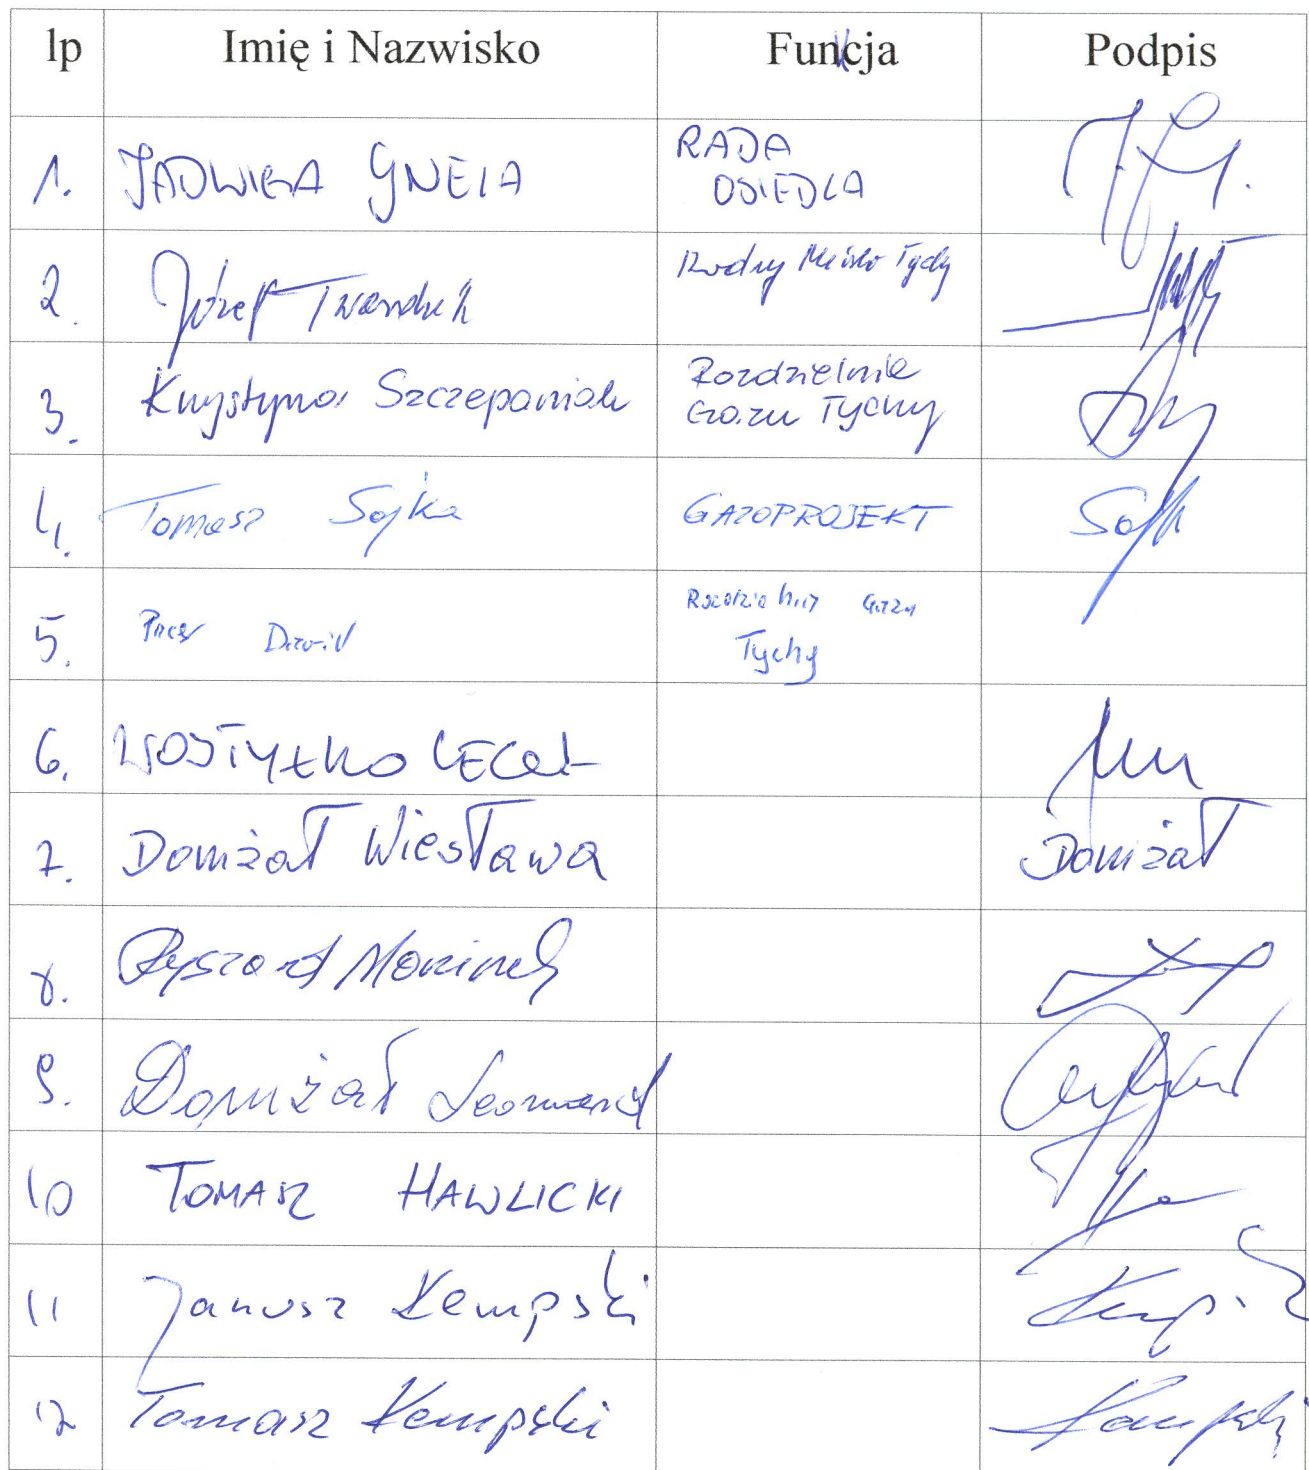 lp Imię i Nazwisko Funkcja Podpis
1. JADWIGA GNELA RADA
OSIEDLA
2. Józef Twardzik Radny Miasta Tychy
3. Krystyna Szczepaniak Rozdzielnia
Gazu Tychy
4. Tomasz Sojka GAZOPROJEKT Sojka
5. Dawid Rozdzielnia Gazu
Tychy
6.
7. Domżał Wiesława Domżał
8. Ryszard
9. Domżał Leonard
10 TOMASZ HAWLICKI
11 Janusz Kempski
12 Tomasz Kempski Kempski